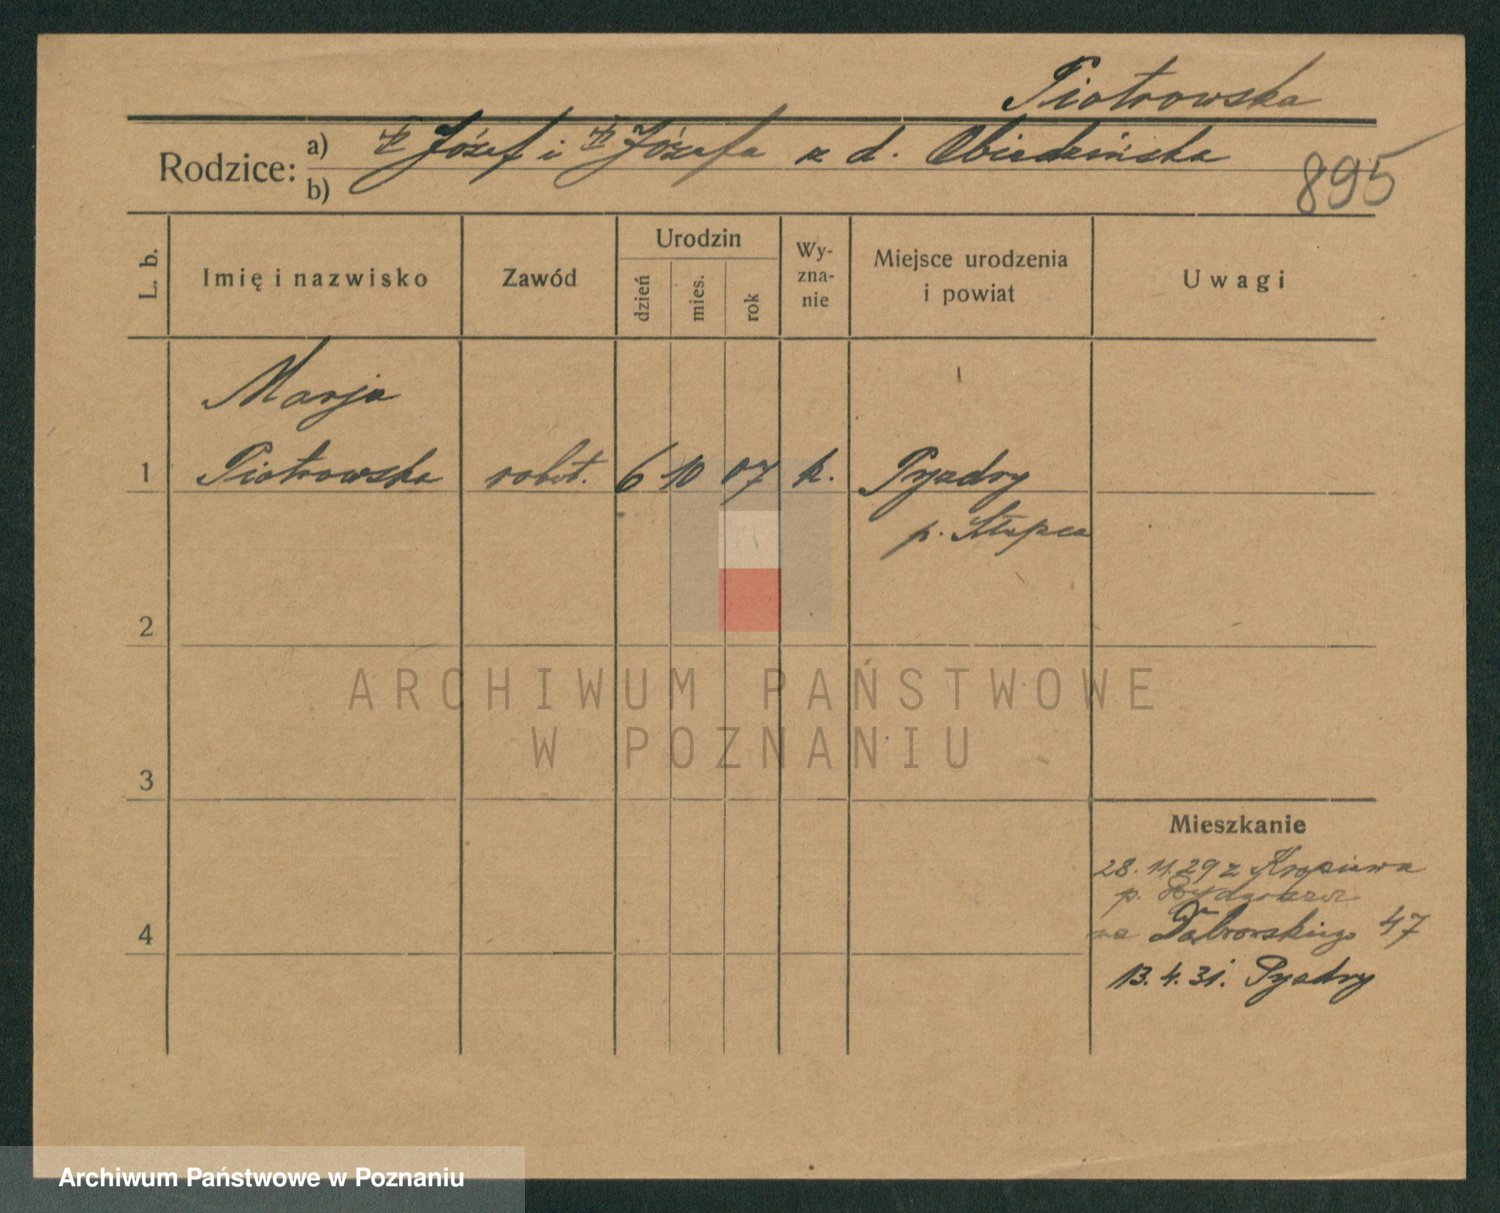 Piotrowska
Rodzice:
a) Józef i Józefa z d. Obiedzińska
b)
895
L. b.
Imię i nazwisko
Zawód
Urodzin
dzień
mies.
rok
Wy-
zna-
nie
Miejsce urodzenia
i powiat
Uwagi
Marja
1 Piotrowska robot. 6 10 07 k. Pyzdry
p. Słupca
2
3
4
Mieszkanie
28.11.29 z
p.
na Dąbrowskiego 47
13.4.31. Pyzdry
ARCHIWUM PAŃSTWOWE
W POZNANIU
Archiwum Państwowe w Poznaniu